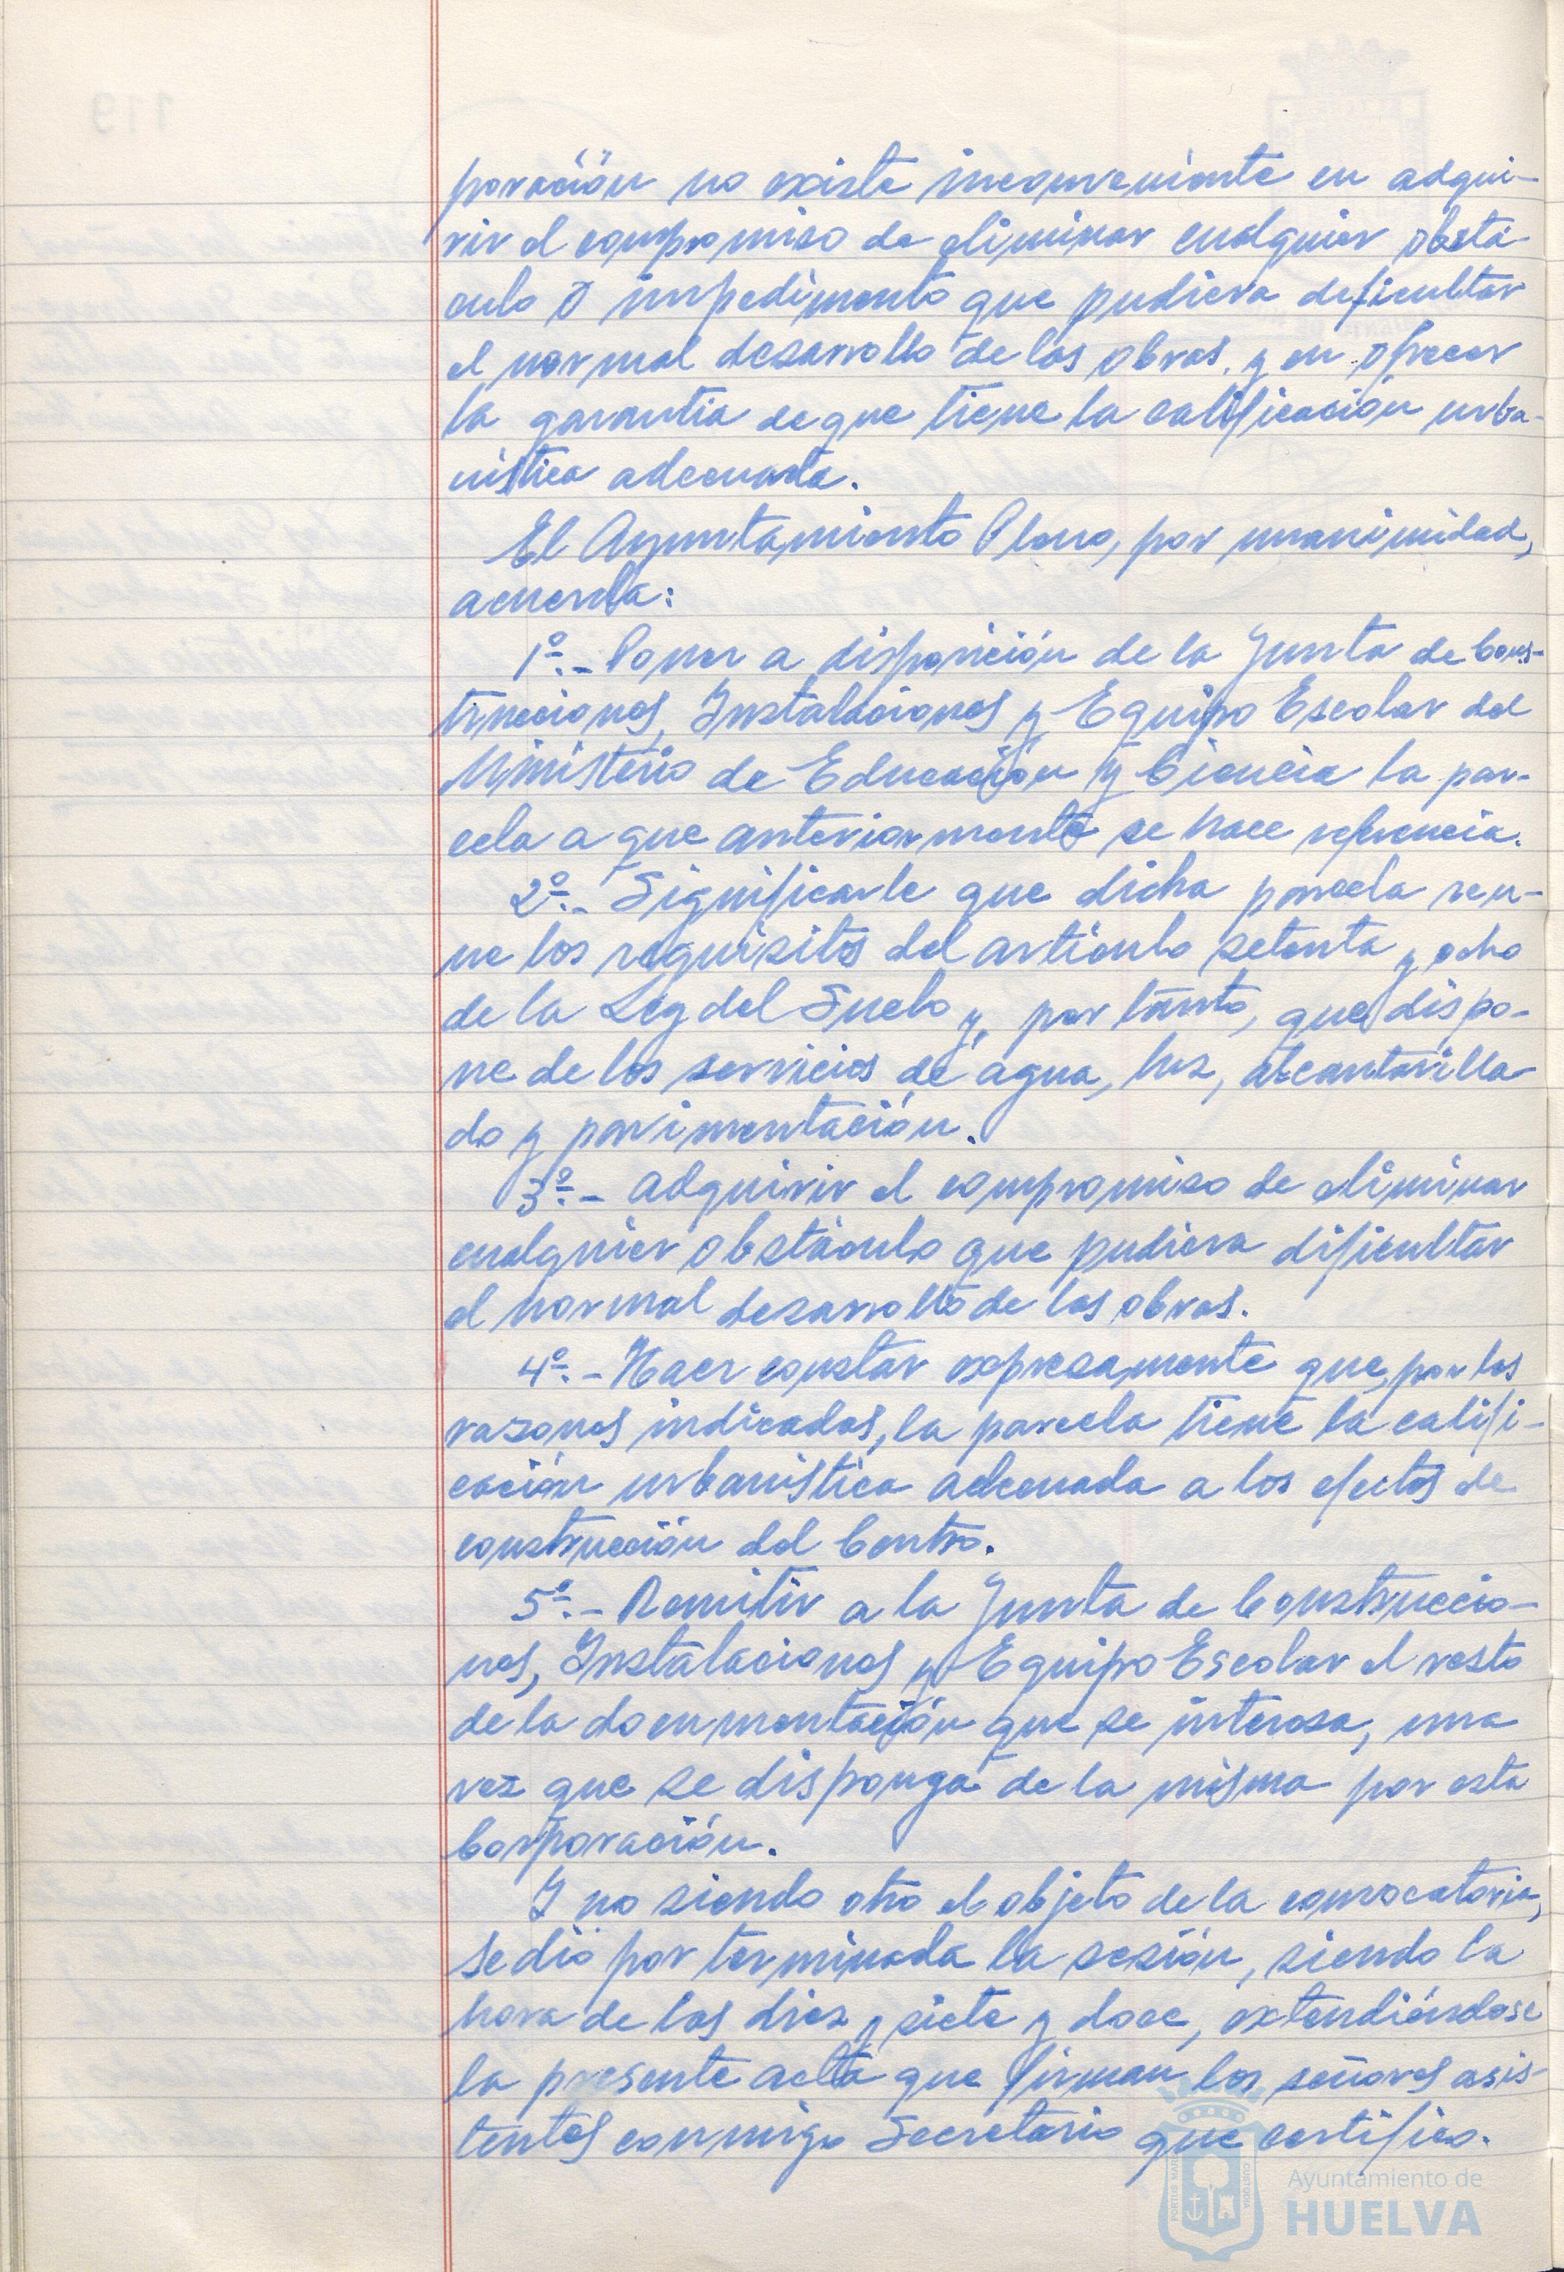 poración no existe inconveniente en adqui-
rir el compromiso de eliminar cualquier obstá-
culo o impedimento que pudiera deficultar
el normal desarrollo de las obras, y en ofrecer
la garantía de que tiene la calificación urba-
nística adecuada.
El Ayuntamiento Pleno, por unanimidad,
acuerda:
1º.- Poner a disposición de la Junta de Cons-
trucciones, Instalaciones y Equipo Escolar del
Ministerio de Educación y Ciencia la par-
cela a que anteriormente se hace referencia.
2º.- Significarle que dicha parcela reu-
ne los requisitos del artículo setenta y ocho
de la Ley del Suelo y, por tanto, que dispo-
ne de los servicios de agua, luz, alcantarilla-
do y pavimentación.
3º.- Adquirir el compromiso de eliminar
cualquier obstáculo que pudiera dificultar
el normal desarrollo de las obras.
4º.- Hacer constar expresamente que, por las
razones indicadas, la parcela tiene la califi-
cación urbanística adecuada a los efectos de
construcción del Centro.
5º.- Remitir a la Junta de Construccio-
nes, Instalaciones y Equipo Escolar el resto
de la documentación que se interesa, una
vez que se disponga de la misma por esta
Corporación.
Y no siendo otro el objeto de la convocatoria,
se dió por terminada la sesión, siendo la
hora de las diez y siete y doce, extendiéndose
la presente acta que firman los señores asis-
tentes conmigo Secretario que certifico.
Ayuntamiento de
HUELVA
119